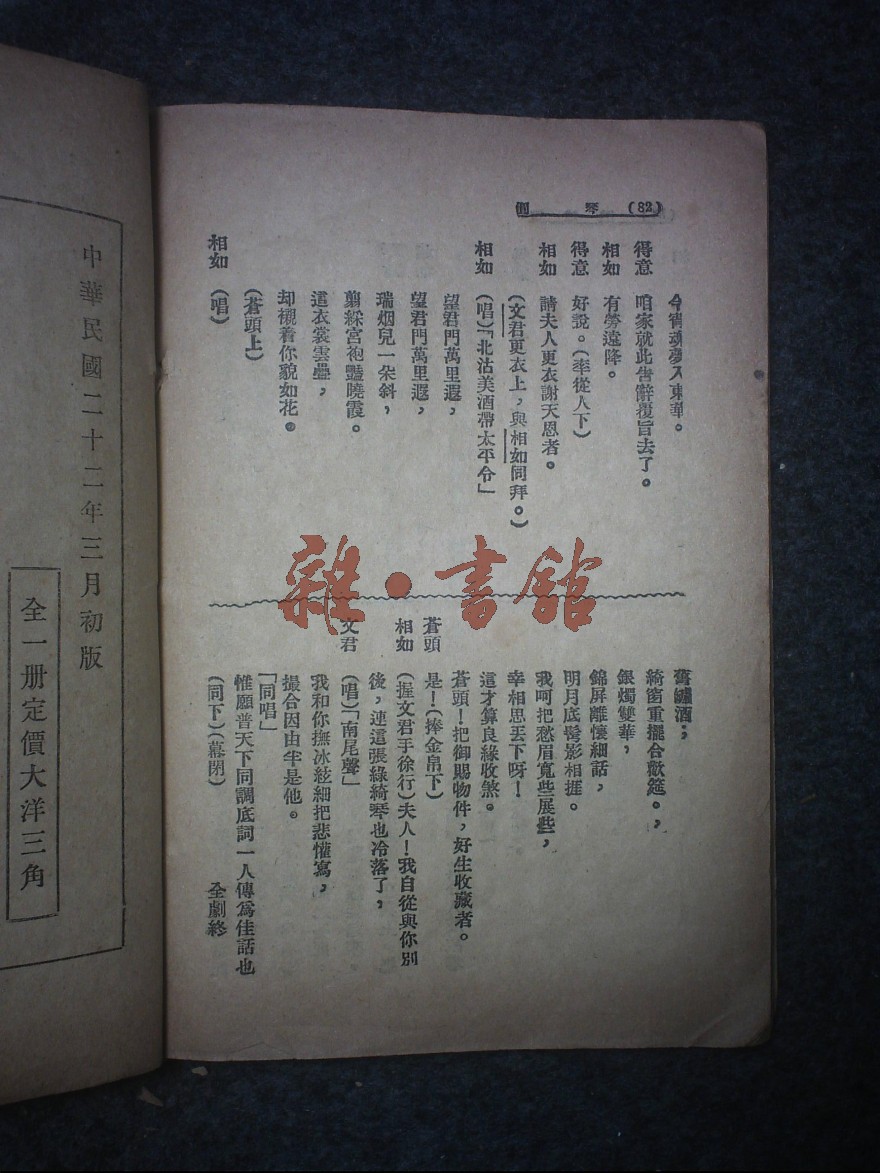 (82) 琴 圓
今宵夢入東華。
得意 咱家就此告辭覆旨去了。
相如 有勞遠降。
得意 好說。(率從人下)
相如 請夫人更衣謝天恩者。
(文君更衣上，與相如同拜。)
相如 (唱)「北沽美酒帶太平令」
望君門萬里遐，
望君門萬里遐，
瑞烟兒一朵斜，
翦綵宮袍豔曉霞。
這衣裳雲疊，
却襯着你貌如花。
(蒼頭上)
相如 (唱)
酒；
綺窗重擺合歡筵。，
銀燭雙華，
錦屏離懷細話，
明月底鬢影相捱。
我呵把愁眉寬些展些，
幸相思丟下呀！
這才算良緣收煞。
蒼頭！把御賜物件，好生收藏者。
蒼頭 是！(捧金帛下)
相如 (握文君手徐行)夫人！我自從與你別
後，連這張綠綺琴也冷落了，
文君 (唱)「南尾聲」
我和你撫冰絃細把悲懽寫，
撮合因由半是他。
「同唱」
惟願普天下同調底詞一人傳爲佳話也
(同下)(幕閉) 全劇終
中華民國二十二年三月初版
全一册定價大洋三角
雜·書館